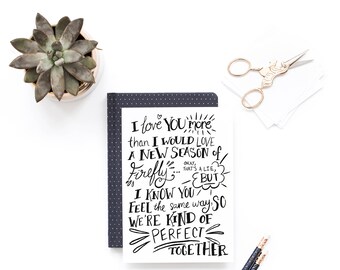 I love YOU more
than I WOULD LOVE
A NEW SEASON of
firefly... OKAY,
THAT'S A LIE,
BUT
I KNOW YOU
FEEL the same way SO
WE'RE KIND OF
PERFECT
TOGETHER